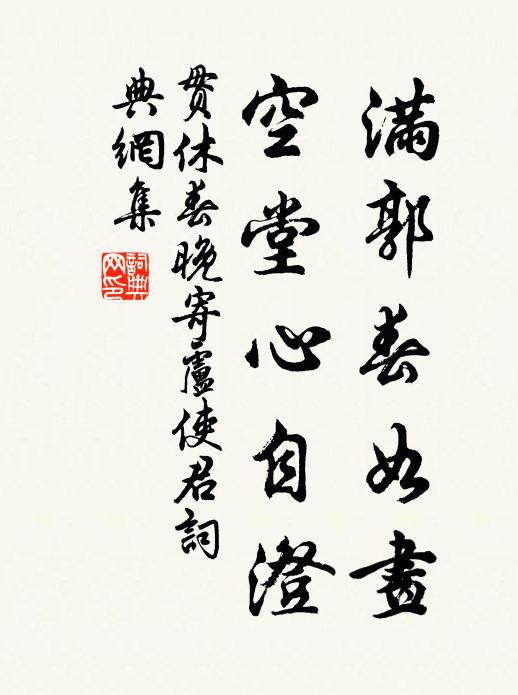 滿郭春如畫
空堂心自澄
貫休春晚寄盧使君詞
典網集
詞典
网印